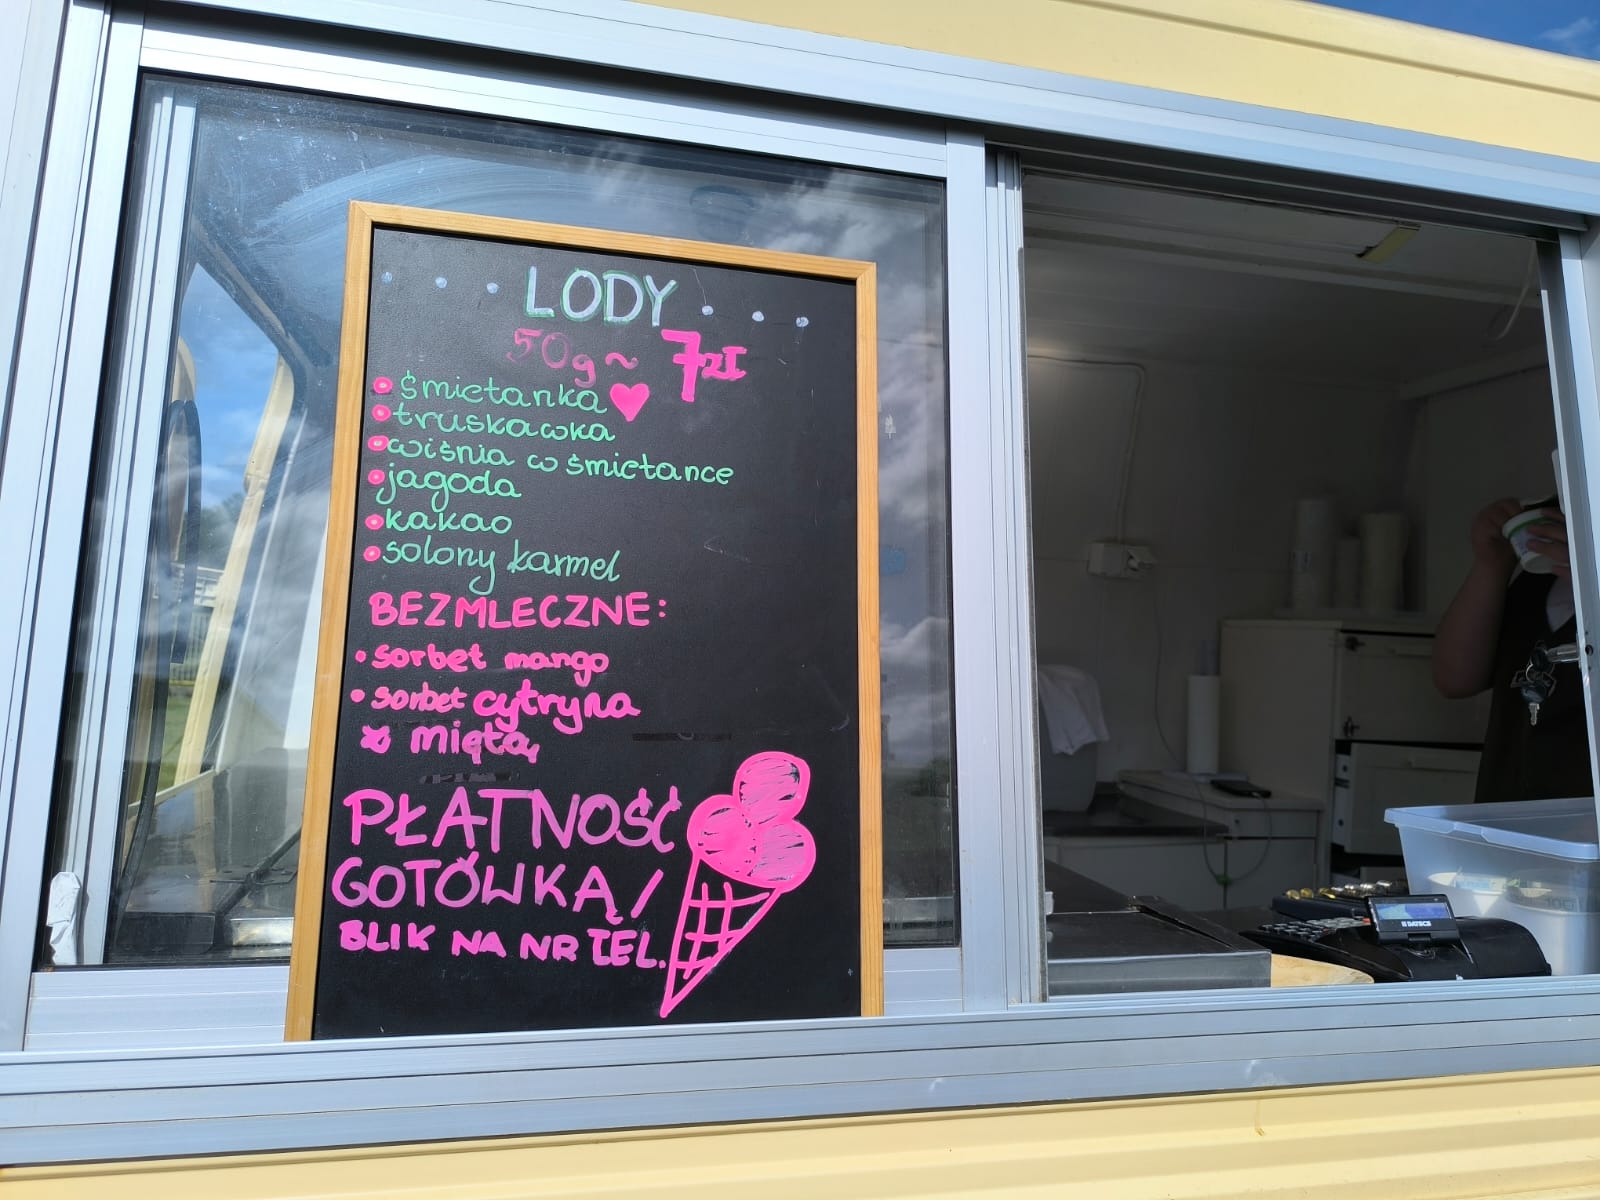 LODY
50g ~ 7zł
śmietanka
truskawka
wiśnia w śmietance
jagoda
kakao
solony karmel
BEZMLECZNE:
sorbet mango
sorbet cytryna
z miętą
PŁATNOŚĆ
GOTÓWKĄ/
BLIK NA NR TEL.
DATECS